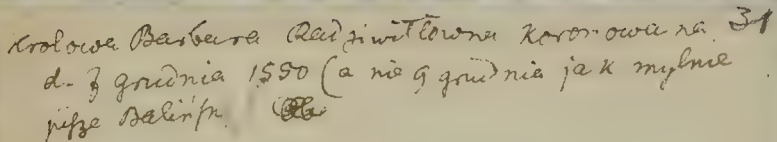 Krolowa Barbara Radziwiłłowna Koronowana 31
d. 7 grudnia 1550 (a nie 9 grudnia jak mylnie
pisze Balińsk.